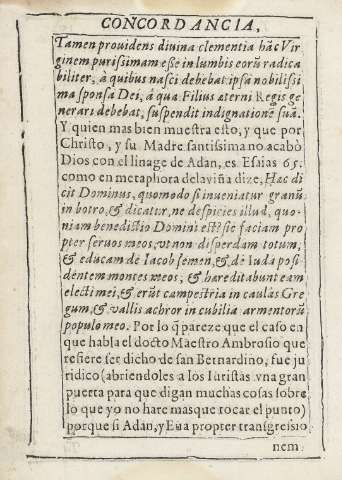 CONCORDANCIA,
Tamen prouidens diuina clementia hãc Vir
ginem purissimam esse in lumbis eorũ radica
biliter, à quibus nasci debebat ipsa nobilissi
ma sponsa Dei, à qua Filius æterni Regis ge
nerari debebat, suspendit indignationẽ suã.
Y quien mas bien muestra esto, y que por
Christo, y su Madre santissima no acabò
Dios con el linage de Adan, es Esaias 65.
como en metaphora dela viña dize, Hæc di
cit Dominus, quomodo si inueniatur granũ
in botro, & dicatur, ne despicies illud, quo-
niam benedictio Domini est? sic faciam pro
pter seruos meos, vt non disperdam totum,
& educam de Iacob semen, & de Iuda posi
dentem montes meos, & hæreditabunt eam
electi mei, & erũt campestria in caulas Gre
gum, & vallis achror in cubilia armentorũ
populo meo. Por lo q̃ pareze que el caso en
que habla el docto Maestro Ambrosio que
refiere ser dicho de san Bernardino, fue ju
ridico (abriendoles a los Iuristas vna gran
puerta para que digan muchas cosas sobre
lo que yo no hare mas que tocar el punto)
porque si Adan, y Eua propter transgresio
nem